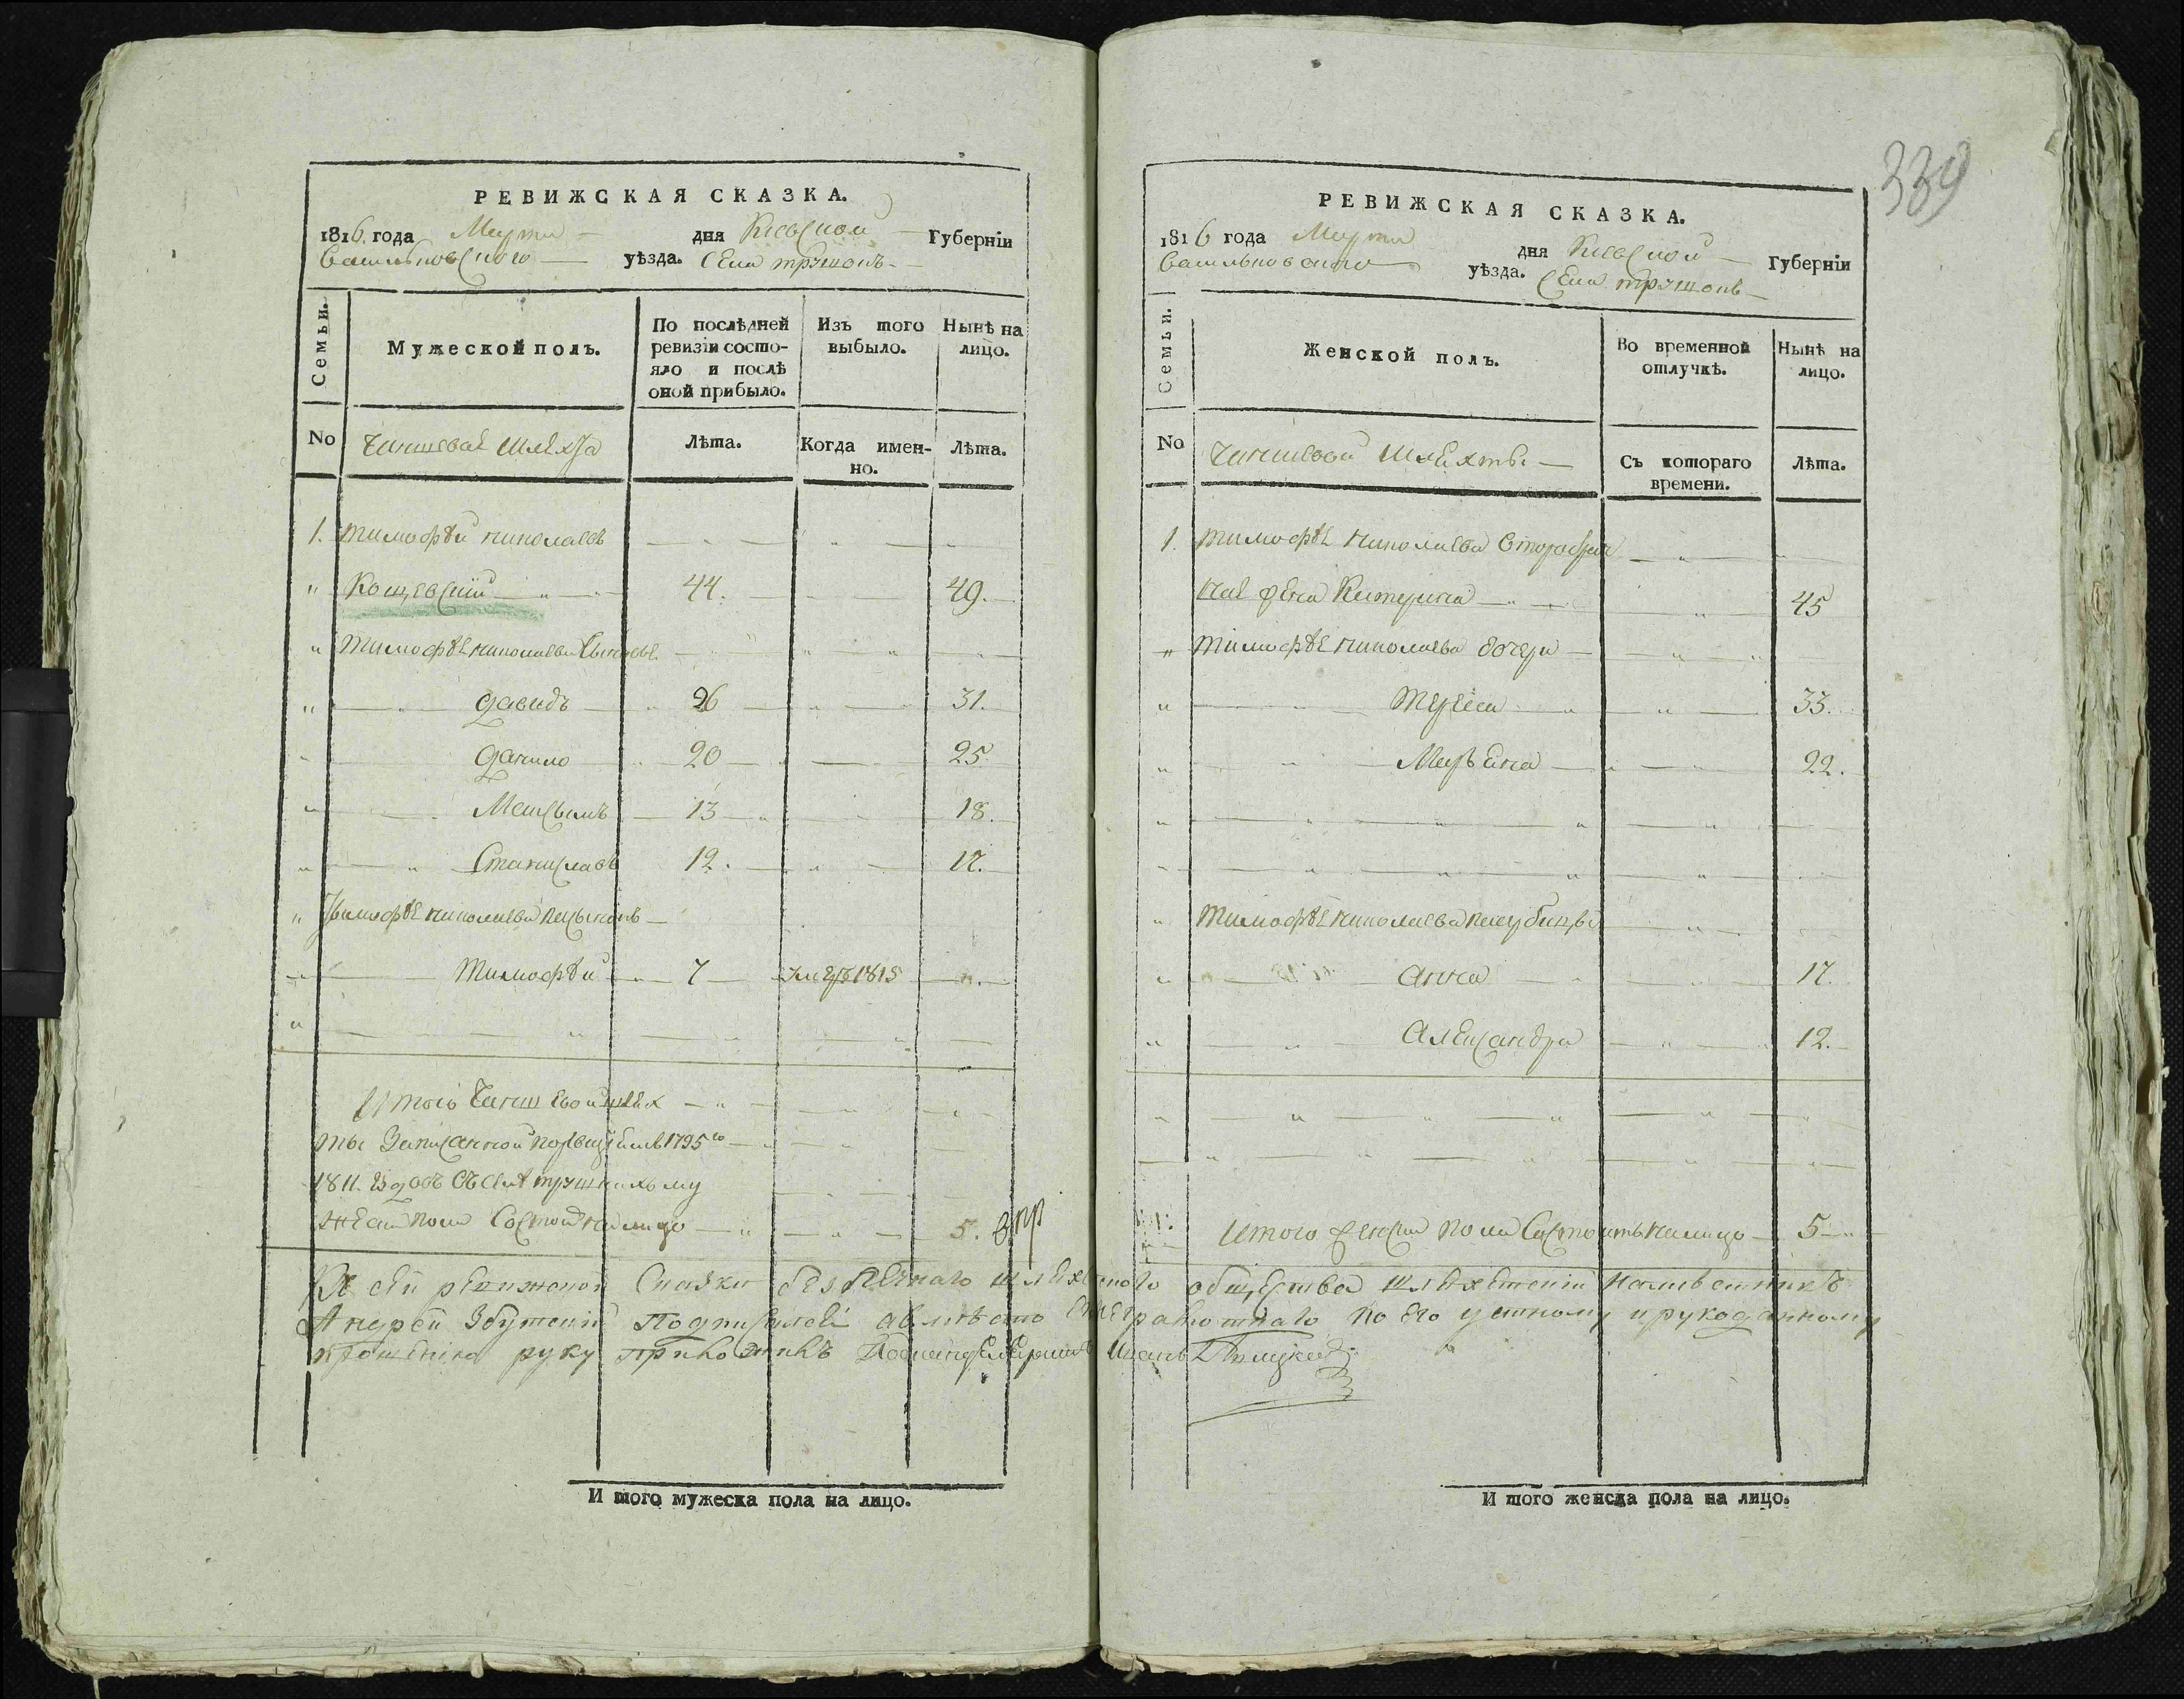 РЕВИЖСКАЯ СКАЗКА.
1816. года Марта дня Киевской Губерніи
Васильковского уѣзда. Села трушокъ
Семьи.
Мужеской полъ.
По послѣдней ревизіи состояло и послѣ оной прибыло.
Изъ того выбыло.
Нынѣ на лицо.
No
Чиншевая шляхта
Лѣта.
Когда именно.
Лѣта.
1. тимофѣй николаевъ
Кощевский 44. 49.
тимофѣя николаева сыновья
давидъ 26 31.
данило 20 25
Максимъ 13 18.
Станиславъ 12. 17.
тимофѣя николаева пасынокъ
тимофѣй 7 умеръ 1815
Итого Чиншевой шлях
ты Записанной 1795го
1811. годовъ
пола состоитъ налицо 5.
РЕВИЖСКАЯ СКАЗКА.
1816 года Марта дня Киевской Губерніи
Васильковского уѣзда. Села трушокъ
339
Семьи.
Женской полъ.
Во временной отлучкѣ.
Нынѣ на лицо.
No
Чиншевой шляхты
Съ котораго времени.
Лѣта.
1. тимофѣя николаева втораобрач
ная жена Катерина 45
тимофѣя николаева дочери
тереса 33.
Марьяна 22.
тимофѣя николаева падчерицы
анна 17.
александра 12.
Итого женска пола состоитъ налицо 5
К сей ревижской Сказки шляхецкого общества шляхетский намѣстникъ
Андрей Збужский а вместо его неграмотнаго по его устному и рукоданному
прошению руку приложилъ Иванъ
И того мужеска пола на лицо.
И того женска пола на лицо.